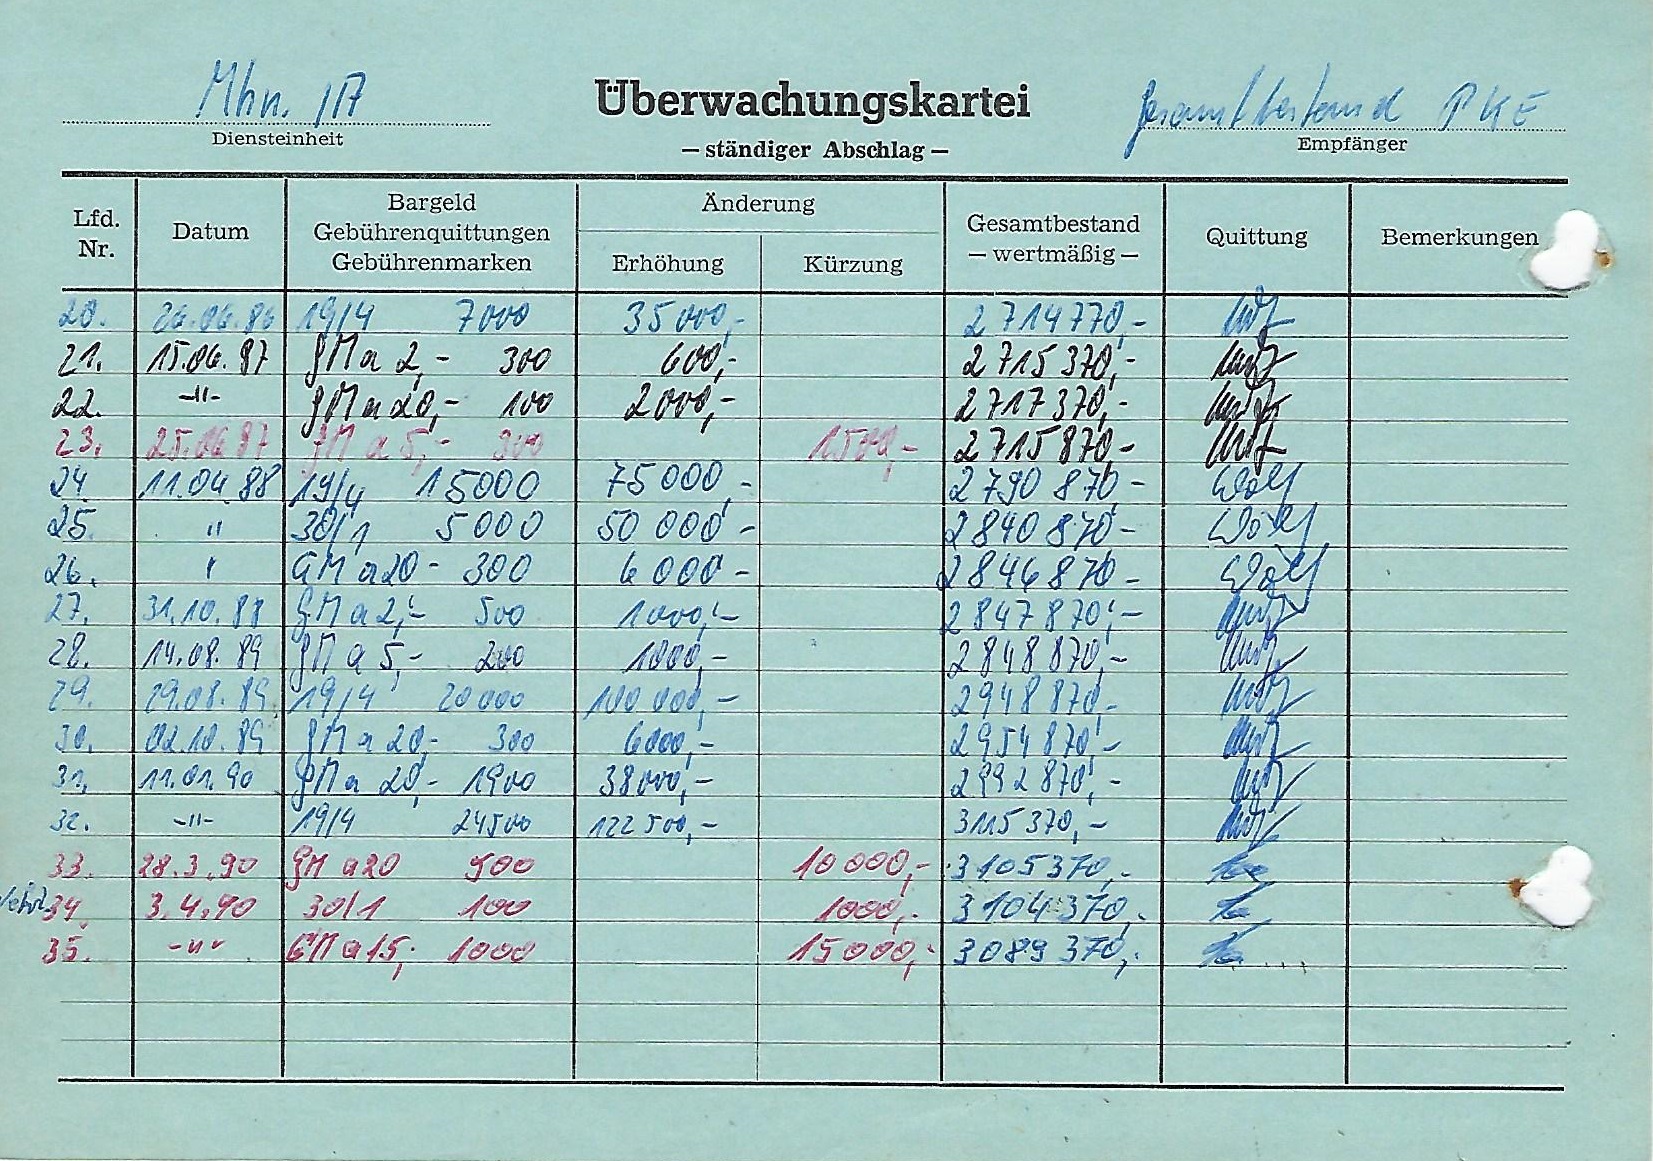 Mhn. 17
Diensteinheit
Überwachungskartei
— ständiger Abschlag —
Gesamtbestand PKE
Empfänger
Lfd. Nr.
Datum
Bargeld
Gebührenquittungen
Gebührenmarken
Änderung
Erhöhung
Kürzung
Gesamtbestand
— wertmäßig —
Quittung
Bemerkungen
20. 26.06.86 19/4 7000 35000,- 2714770,-
21. 15.06.87 GM a 2,- 300 600,- 2715370,-
22. -"- GM a 20,- 100 2000,- 2717370,-
23. 25.06.87 GM a 5,- 300 1500,- 2715870-
24. 11.04.88 19/4 15000 75000,- 2790870-
25. " 30/1 5000 50000- 2840870-
26. " GM a 20- 300 6000- 2846870-
27. 31.10.88 GM a 2,- 500 1000,- 2847870,-
28. 14.08.89 GM a 5,- 200 1000,- 2848870,-
29. 29.08.89 19/4 20000 100000,- 2948870,-
30. 02.10.89 GM a 20,- 300 6000,- 2954870,-
31. 11.01.90 GM a 20,- 1900 38000,- 2992870,-
32. -"- 19/4 24500 122500,- 3115370,-
33. 28.3.90 GM a 20 500 10000,- 3105370,-
34. 3.4.90 30/1 100 1000,- 3104370,-
35. -"- GM a 15,- 1000 15000,- 3089370,-